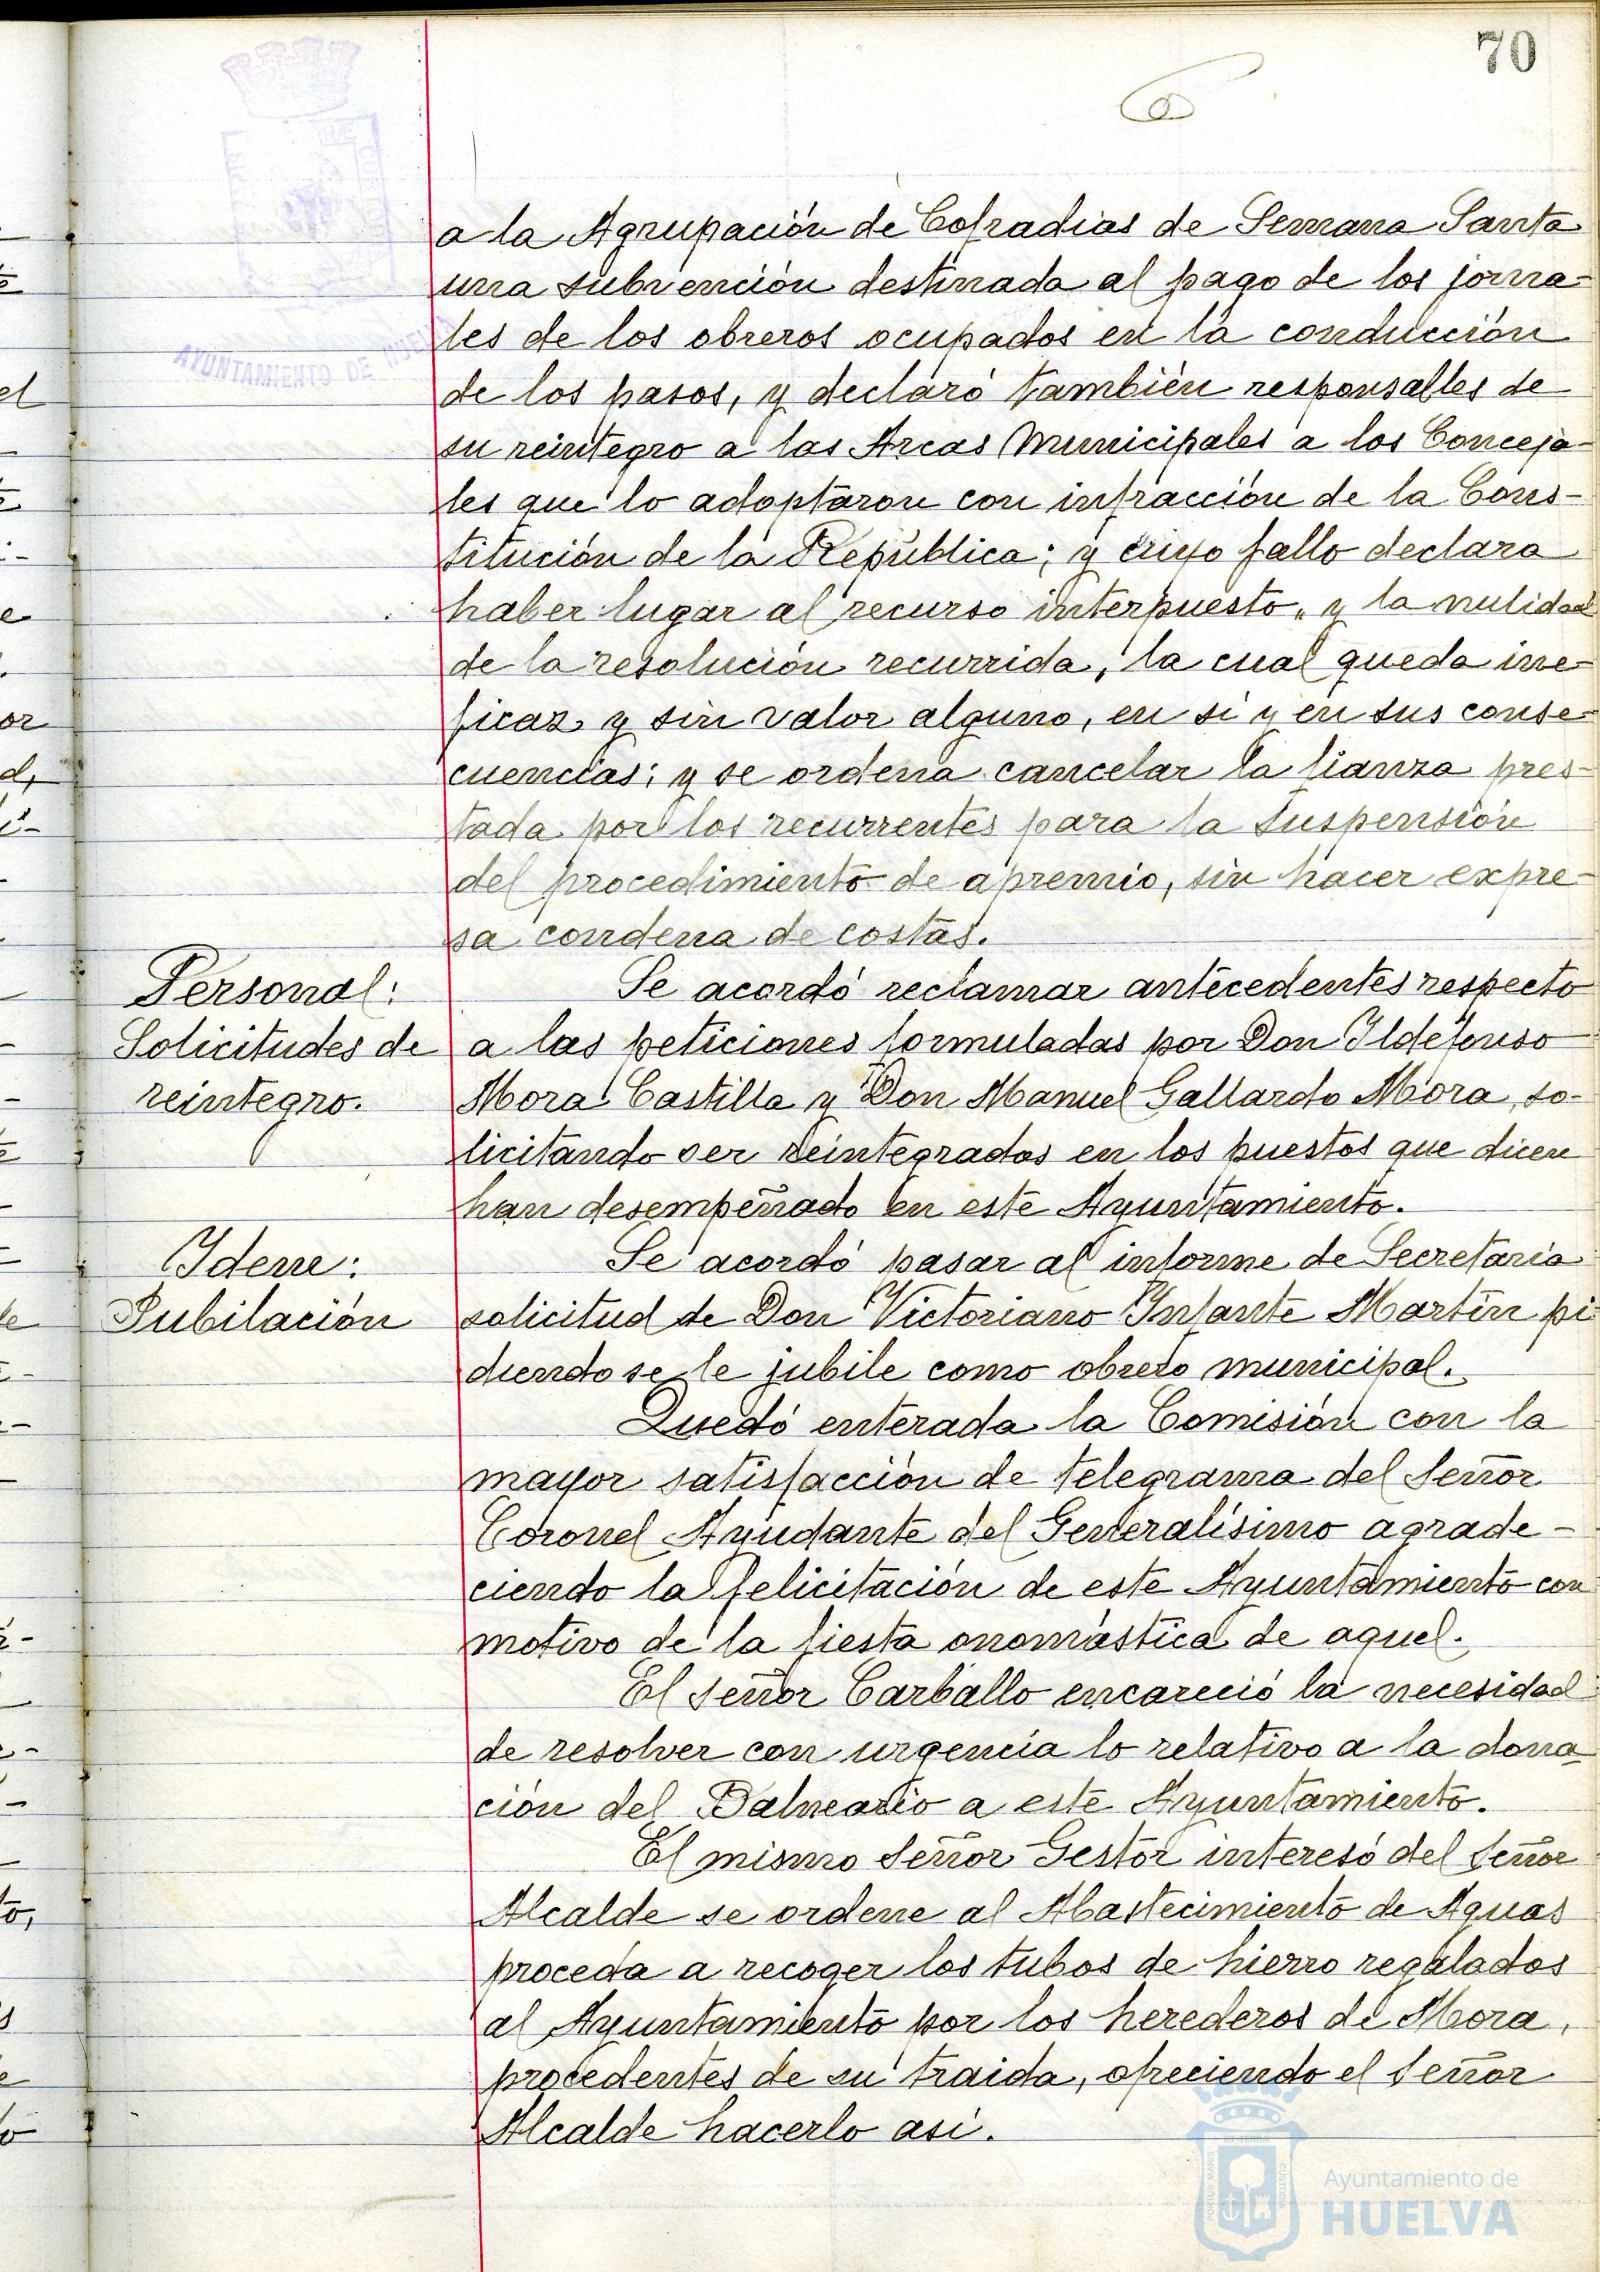 70
AYUNTAMIENTO DE HUELVA
a la Agrupación de Cofradias de Semana Santa
una subvención destinada al pago de los jorna-
les de los obreros ocupados en la conducción
de los pasos, y declaró también responsables de
su reintegro a las Arcas Municipales a los Conceja-
les que lo adoptaron con infracción de la Cons-
titución de la República; y cuyo fallo declara
haber lugar al recurso interpuesto, y la nulidad
de la resolución recurrida, la cual queda ine-
ficaz y sin valor alguno, en si y en sus conse-
cuencias; y se ordena cancelar la fianza pres-
tada por los recurrentes para la suspensión
del procedimiento de apremio, sin hacer expre-
sa condena de costas.
Personal:
Solicitudes de
reintegro.
Se acordó reclamar antecedentes respecto
a las peticiones formuladas por Don Ildefonso
Mora Castilla y Don Manuel Gallardo Mora, so-
licitando ser reintegrados en los puestos que dicen
han desempeñado en este Ayuntamiento.
Idem:
Jubilación
Se acordó pasar al informe de Secretaría
solicitud de Don Victoriano Infante Martín pi-
diendo se le jubile como obrero municipal.
Quedó enterada la Comisión con la
mayor satisfacción de telegrama del Señor
Coronel Ayudante del Generalísimo agrade-
ciendo la felicitación de este Ayuntamiento con
motivo de la fiesta onomástica de aquel.
El señor Carballo encareció la necesidad
de resolver con urgencia lo relativo a la dona-
ción del Balneario a este Ayuntamiento.
El mismo Señor Gestor interesó del Señor
Alcalde se ordene al Abastecimiento de Aguas
proceda a recoger los tubos de hierro regalados
al Ayuntamiento por los herederos de Mora,
procedentes de su traida, ofreciendo el Señor
Alcalde hacerlo asi.
Ayuntamiento de
HUELVA